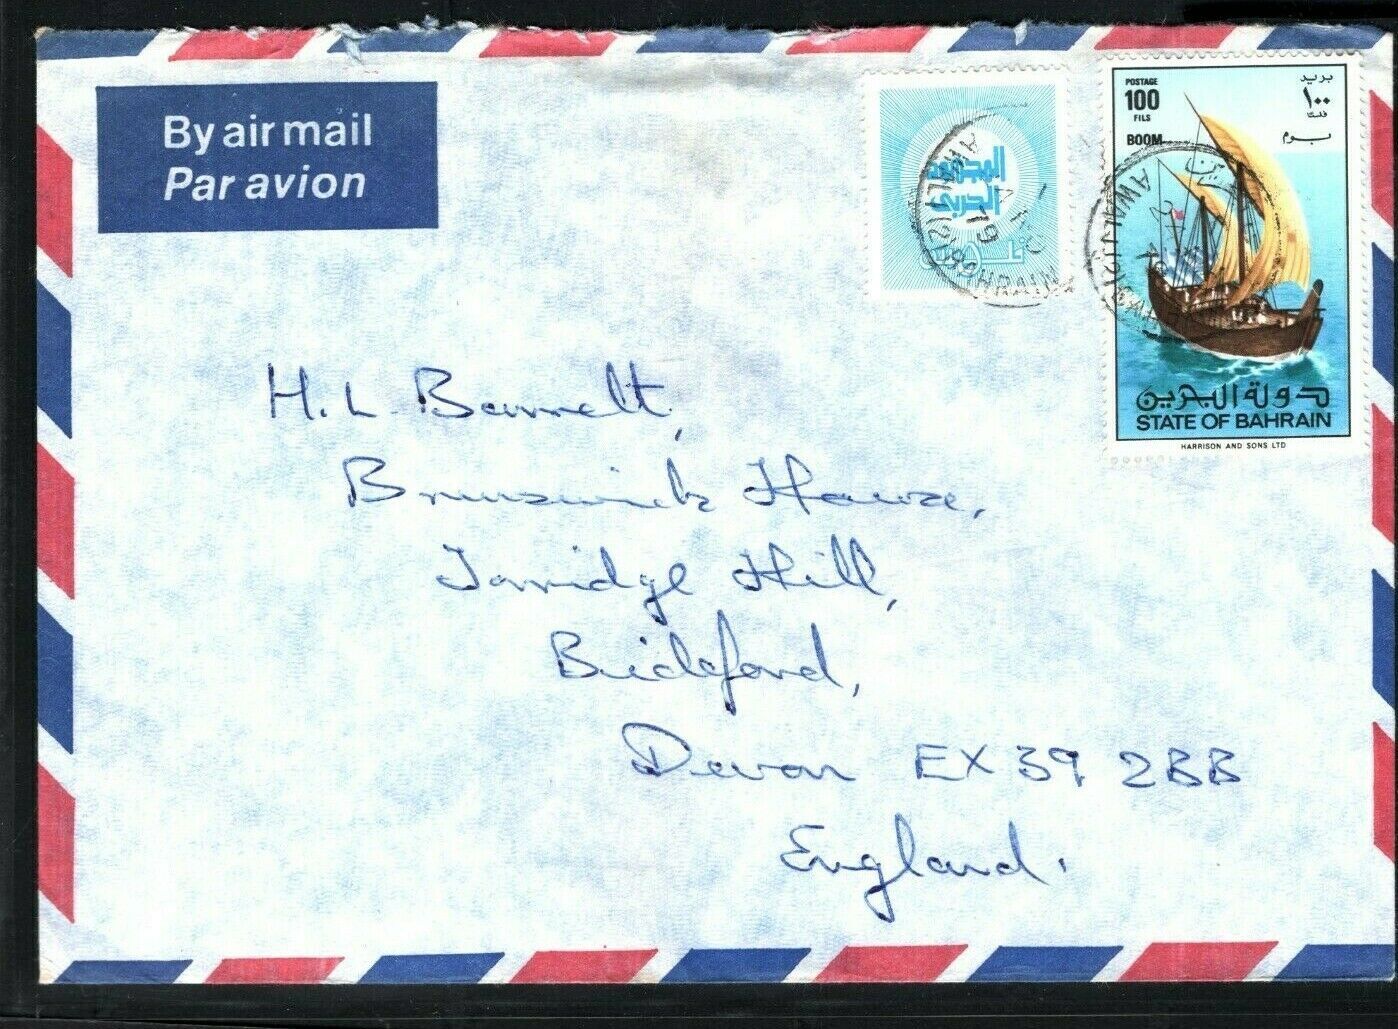 By air mail
Par avion
المجهود
الحربي
POSTAGE
100
FILS
BOOM
بريد
١٠٠
فلس
بوم
دولة البحرين
STATE OF BAHRAIN
HARRISON AND SONS LTD
AWALI BAHRAIN
H. L. Barnett,
Brunswick House,
Torridge Hill,
Bideford,
Devon EX39 2BB
England.